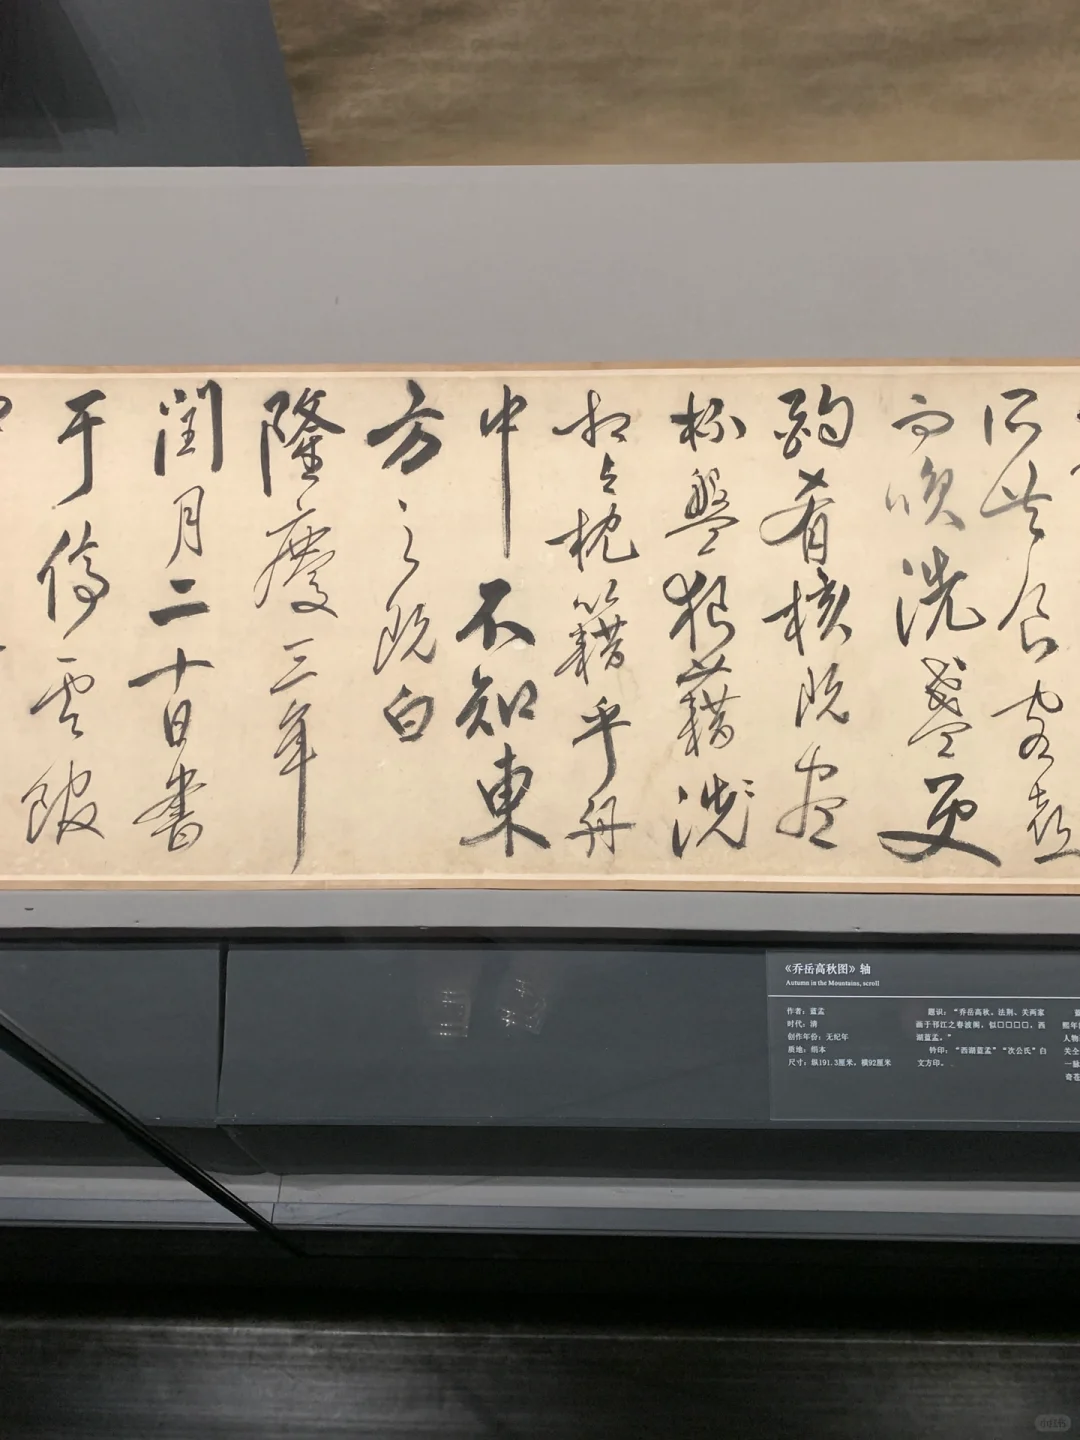 所共食客喜
而咲洗盞更
酌肴核既盡
杯盤狼藉洗
相与枕籍乎舟
中不知東
方之既白
隆慶三年
閏月二十日書
于停雲館
《乔岳高秋图》轴
Autumn in the Mountains, scroll
作者：蓝孟
时代：清
创作年份：无纪年
质地：绢本
尺寸：纵191.3厘米，横92厘米
题识：“乔岳高秋。法荆、关两家
画于邗江之春波阁，似□□□□，西
湖蓝孟。”
钤印：“西湖蓝孟”“次公氏”白
文方印。
小红书